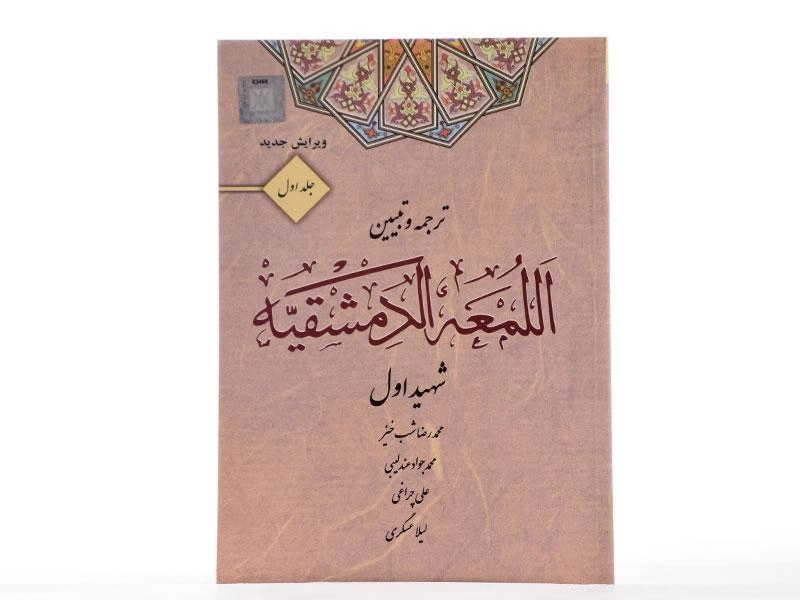 03466
ویرایش جدید
جلد اول
ترجمه و تبیین
اَللُمعَه الدِمشقیّه
شهید اول
محمدرضا شب خیز
محمدجواد عندلیبی
علی چراغی
لیلا عسگری